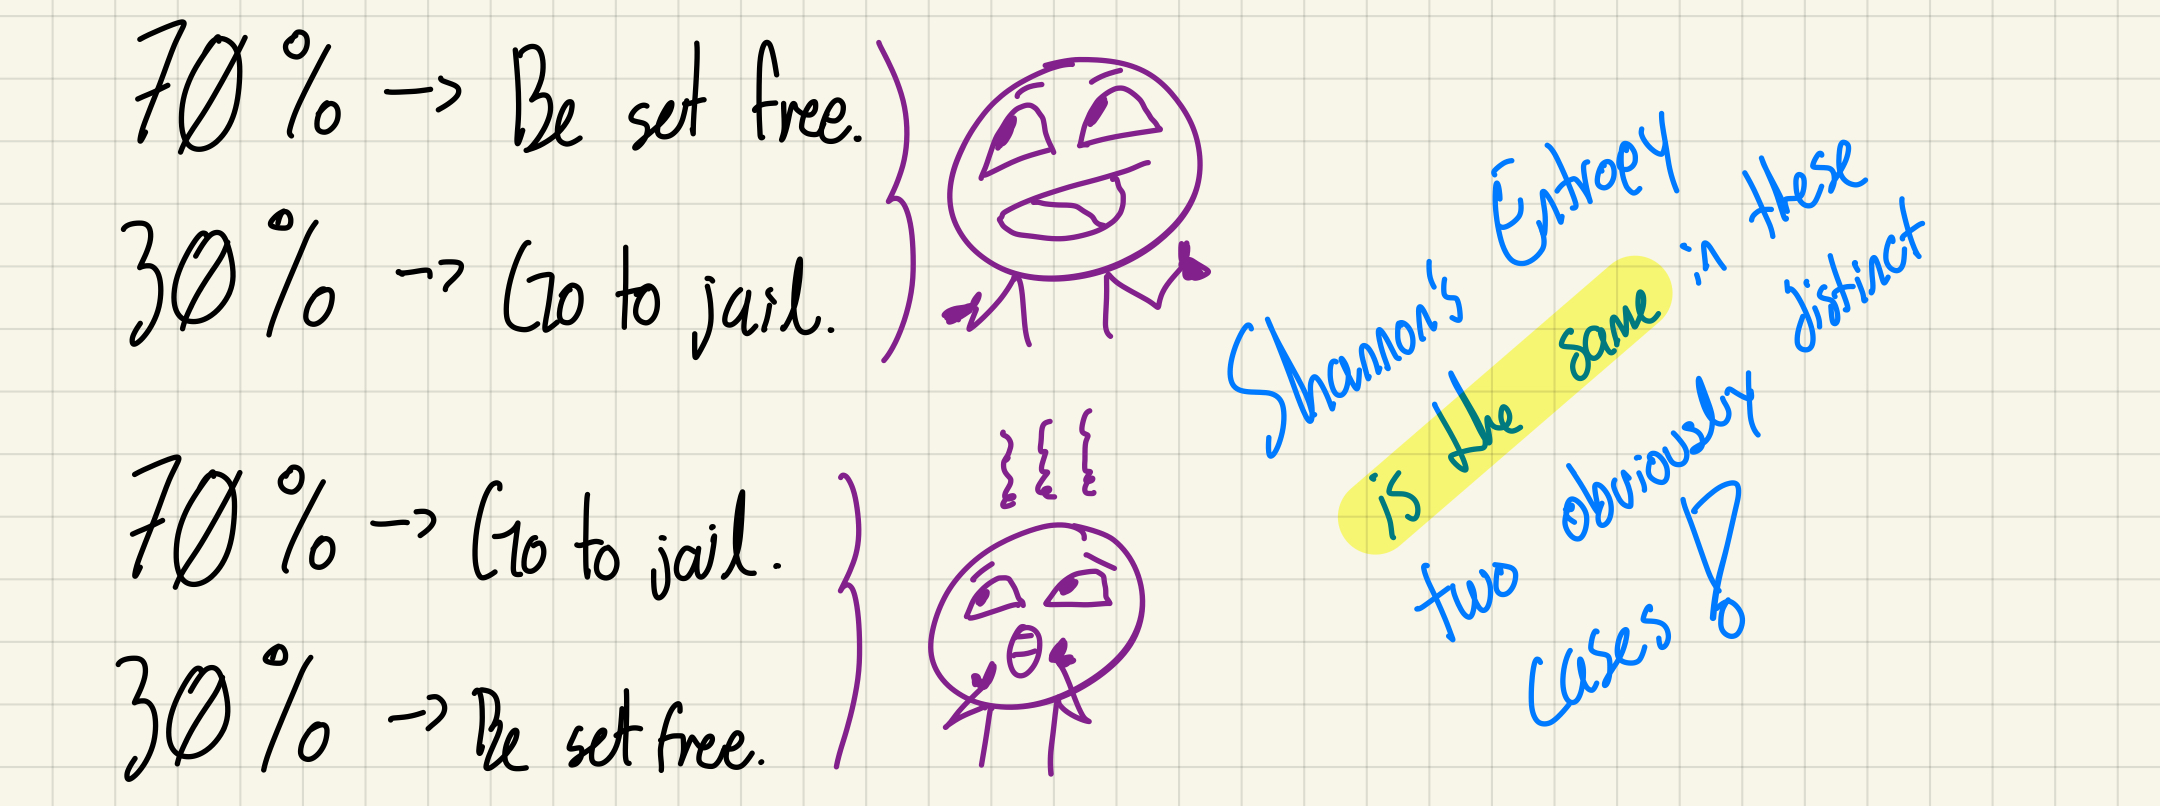 70% -> Be set free.
30% -> Go to jail.
70% -> Go to jail.
30% -> Be set free.
Shannon's Entropy
is the same in these
two obviously distinct
cases !